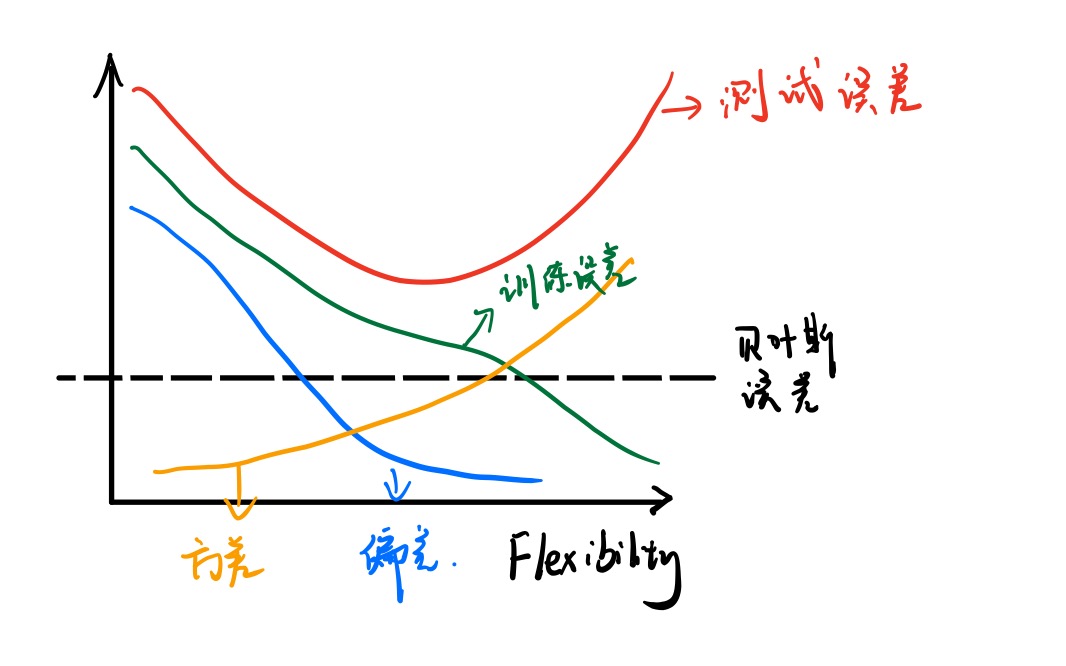 测试误差
训练误差
贝叶斯
误差
方差
偏差.
Flexibility